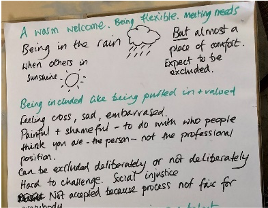 A warm welcome. Being flexible. Meeting needs
Being in the rain
when others in
sunshine.
But almost a
place of comfort.
Expect to be
excluded.
Being included like being pulled in + valued
Feeling cross, sad, embarrased.
Painful + shameful - to do with who people
think you are - the person - not the professional
position.
Can be excluded deliberately or not deliberately
Hard to challenge. Social injustice
Not accepted because process not five for